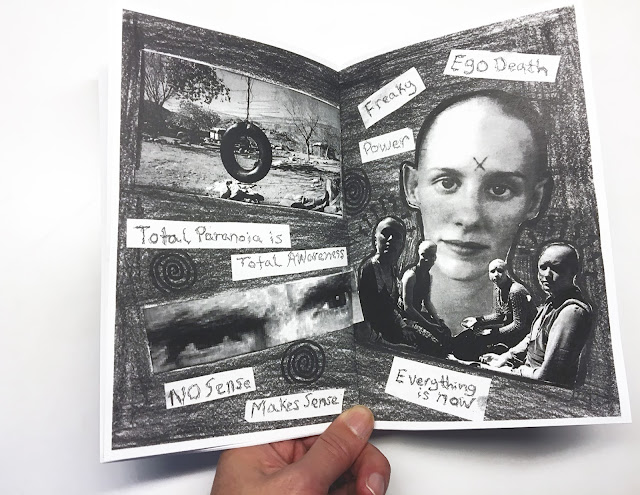 Total Paranoia is
Total Awareness
No Sense
Makes Sense
Freaky
Power
Ego Death
X
Everything
is now